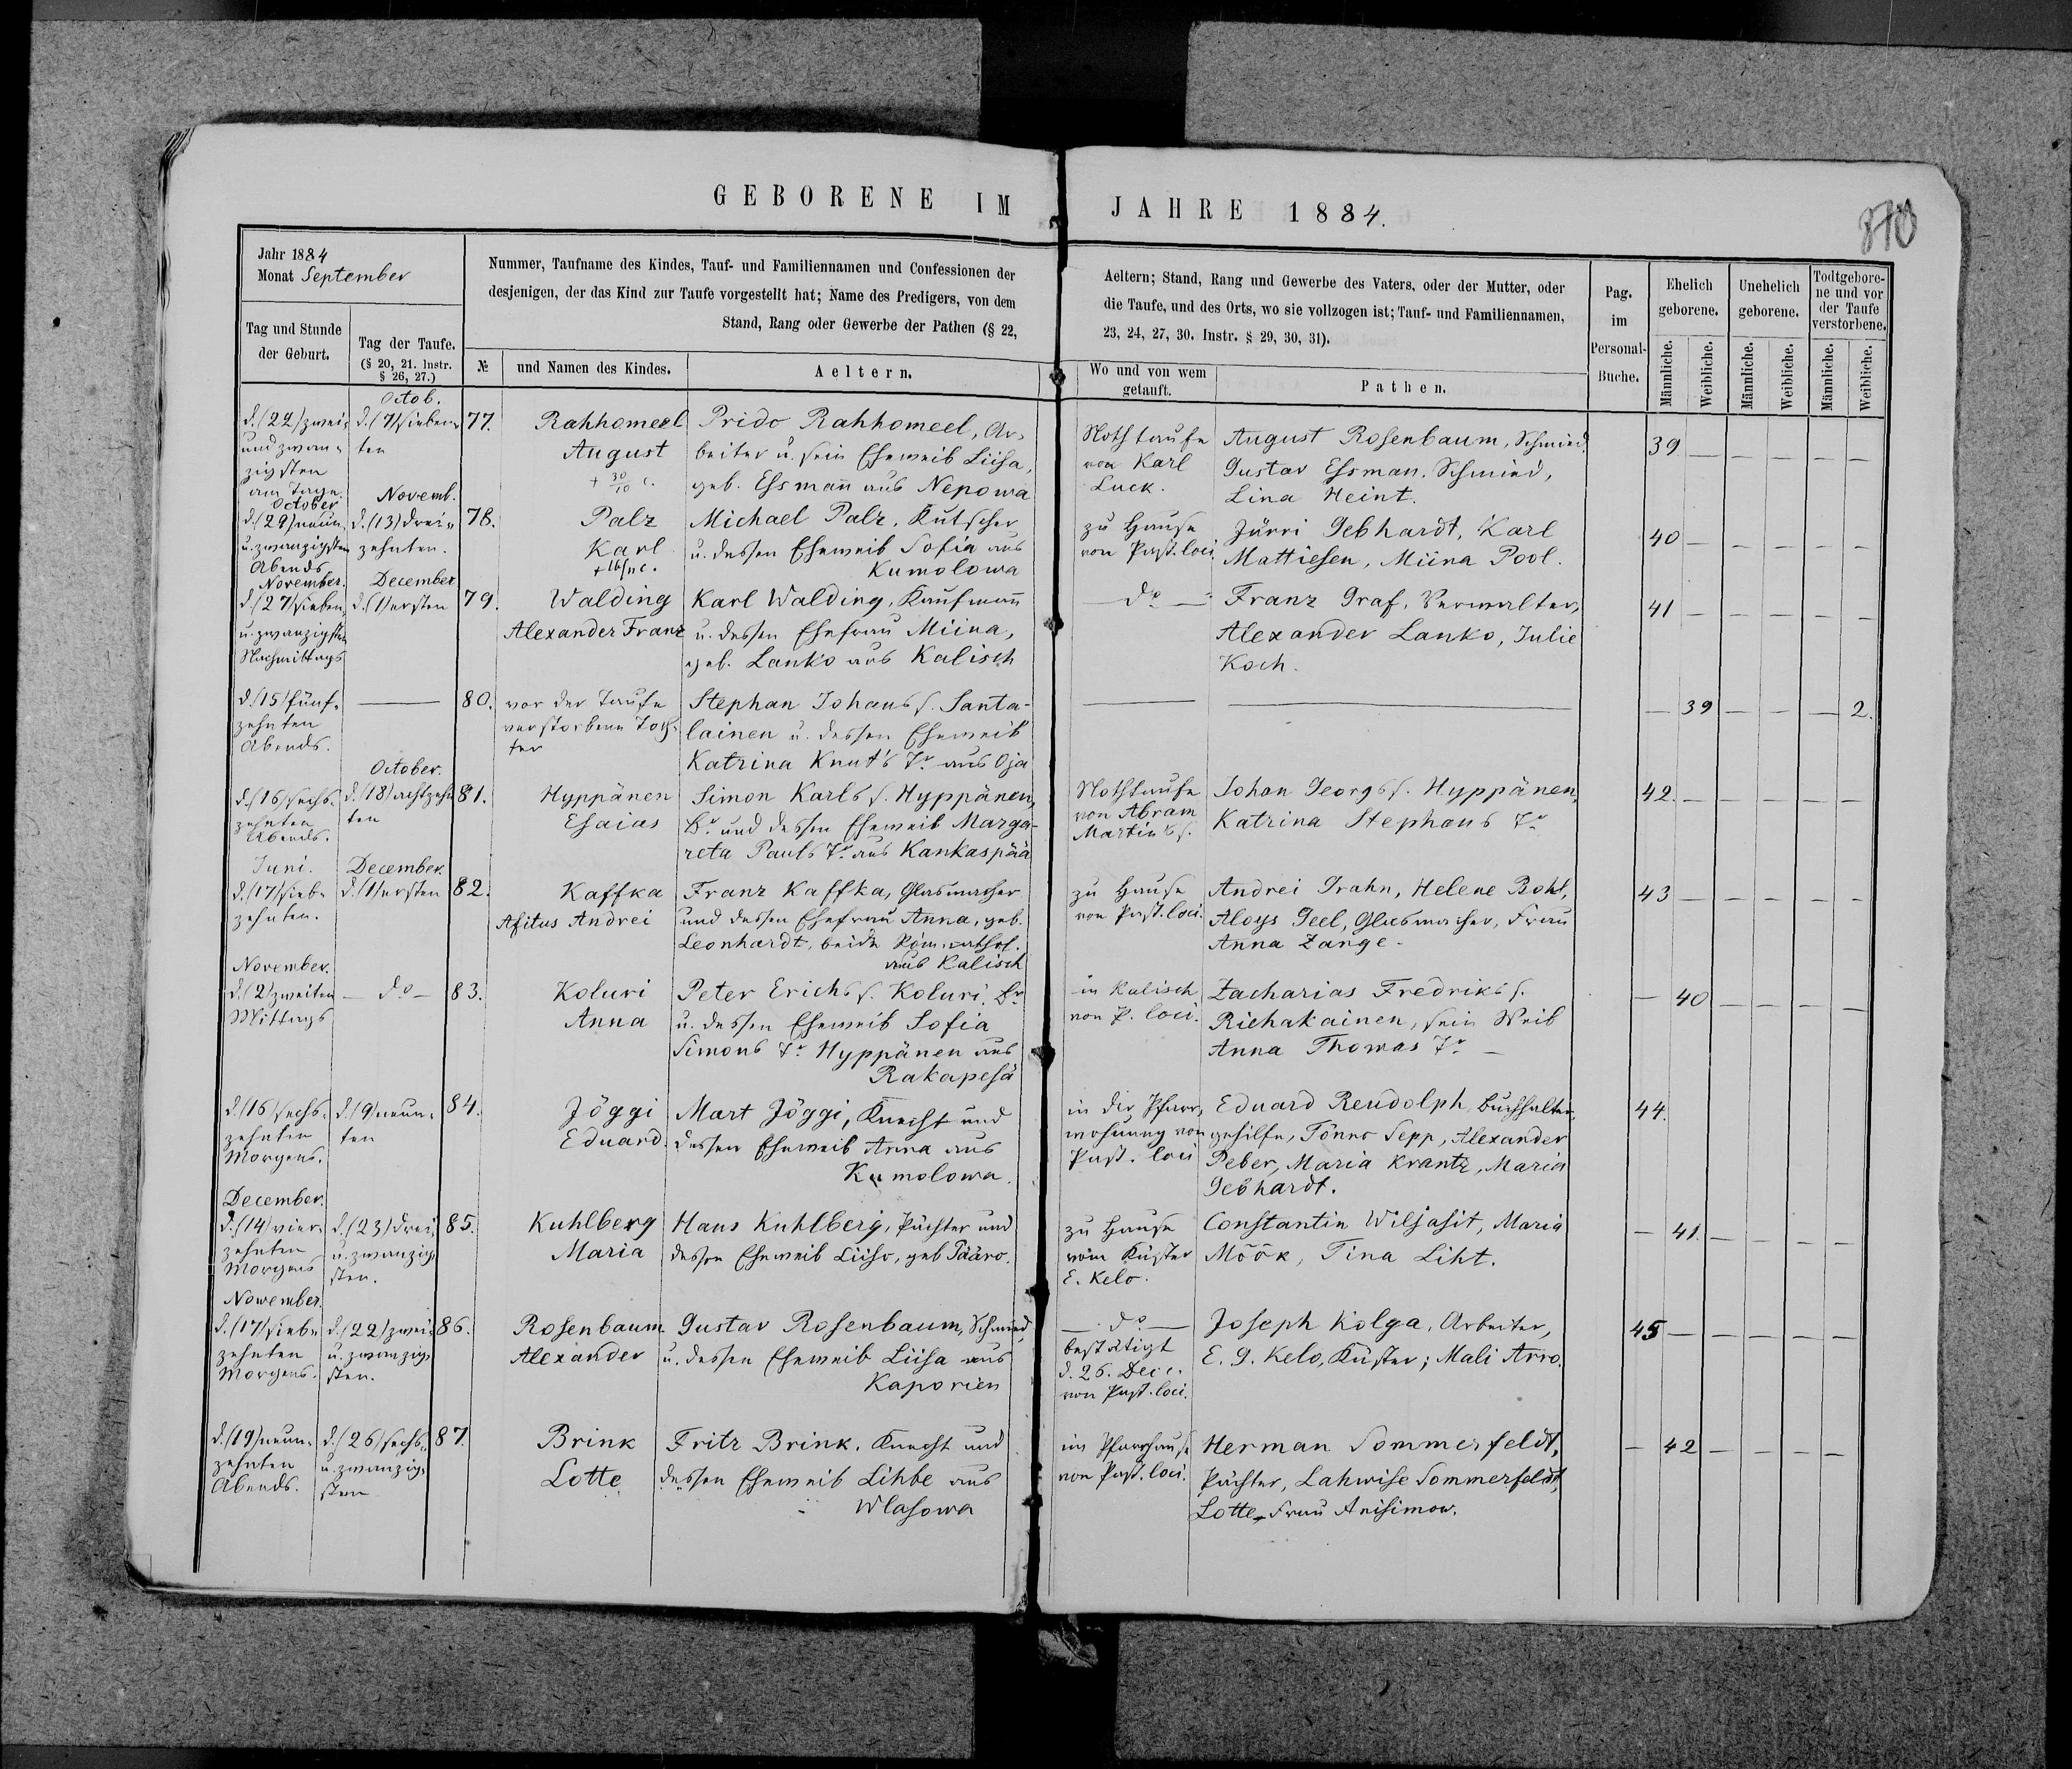 GEBORENE IM JAHRE 1884.
870
Jahr 1884
Monat September
Nummer, Taufname des Kindes, Tauf- und Familiennamen und Confessionen der
desjenigen, der das Kind zur Taufe vorgestellt hat; Name des Predigers, von dem
Stand, Rang oder Gewerbe der Pathen (§ 22,
Aeltern; Stand, Rang und Gewerbe des Vaters, oder der Mutter, oder
die Taufe, und des Orts, wo sie vollzogen ist; Tauf- und Familiennamen,
23, 24, 27, 30. Instr. § 29, 30, 31).
Tag und Stunde
der Geburt.
Tag der Taufe.
(§ 20, 21. Instr.
§ 26, 27.)
№
und Namen des Kindes.
Aeltern.
Wo und von wem
getauft.
Pathen.
Pag.
im
Personal-
Buche.
Ehelich
geborene.
Unehelich
geborene.
Todtgebore-
ne und vor
der Taufe
verstorbene.
Männliche.
Weibliche.
Männliche.
Weibliche.
Männliche.
Weibliche.
d. (22) zwei-
und zwan-
zigsten
am Tage.
Octob.
d. (7) sieben-
ten
77.
Rahhomeel
August
+ 30/10 c.
Prido Rahhomeel, Ar-
beiter u. sein Eheweib Liisa,
geb. Essmann aus Nepowa
Nothtaufe
von Karl
Luck.
August Rosenbaum, Schmied,
Gustav Essman. Schmied,
Lina Heint.
39 — — — — —
October
d. (29) neun-
u. zwanzigsten
Abends
Novemb.
d. (13) drei-
zehnten.
78.
Palz
Karl
+ 16/11 c.
Michael Palz, Kutscher
u. dessen Eheweib Sofia aus
Kumolowa
zu Hause
von Past. loci.
Jürri Gebhardt, Karl
Mattiesen, Miina Pool.
40 — — — — —
November.
d. (27) sieben-
u. zwanzigsten
Nachmittags
December
d. (1) ersten
79.
Walding
Alexander Franz
Karl Walding, Kaufmann
u. dessen Ehefrau Miina,
geb. Lanko aus Kalisch
do —
Franz Graf, Verwalter,
Alexander Lanko, Julie
Koch.
41 — — — — —
d. (15) fünf-
zehnten
Abends.
—
80.
vor der Taufe
verstorbene Toch-
ter
Stephan Johans s. Santa-
lainen u. dessen Eheweib
Katrina Knut's Tr. aus Oja
— 39 — — — 2.
d. (16) sechs-
zehnten
Abends.
October.
d. (18) achtzehn-
ten
81.
Hyppänen
Esaias
Simon Karls s. Hyppänen,
Br. und dessen Eheweib Marga-
reta Pauls Tr. aus Kankaspää
Nothtaufe
von Abram
Martin's s.
Johan Georgs s. Hyppänen,
Katrina Stephans Tr.
42. — — — — —
Juni.
d. (17) sieb-
zehnten.
December.
d. (1) ersten
82.
Kaffka
Afitus Andrei
Franz Kaffka, Glasmacher
und dessen Ehefrau Anna, geb.
Leonhardt, beide Röm. cathol.
aus Kalisch
zu Hause
von Past. loci.
Andrei Grahn, Helene Bohl,
Aloys Geel, Glasmacher, Frau
Anna Zange.
43 — — — — —
November.
d. (2) zweiten
Mittags
— do —
83.
Koluri
Anna
Peter Erichs s. Koluri. Br.
u. dessen Eheweib Sofia
Simons Tr. Hyppänen aus
Rakapesä
in Kalisch
von P. loci.
Zacharias Fredriks s.
Riehakainen, sein Weib
Anna Thomas Tr. —
— 40 — — — —
d. (16) sechs-
zehnten
Morgens.
d. (9) neun-
ten
84.
Jöggi
Eduard.
Mart Jöggi, Knecht und
dessen Eheweib Anna aus
Kumolowa.
in der Pfarr-
wohnung von
Past. loci
Eduard Reudolph, Buchhalter-
gehilfe, Tönno Sepp, Alexander
Peber, Maria Krantz, Maria
Gebhardt.
44.
December.
d. (14) vier-
zehnten
Morgens
d. (23) drei
u. zwanzig-
sten.
85.
Kuhlberg
Maria
Hans Kuhlberg, Pächter und
dessen Eheweib Liiso, geb Pääro.
zu Hause
vom Küster
E. Kelo.
Constantin Wiljasit, Maria
Möök, Tina Liht.
— 41. — — — —
November.
d. (17) sieb-
zehnten
Morgens.
d. (22) zwei-
u. zwanzig-
sten.
86.
Rosenbaum
Alexander
Gustav Rosenbaum, Schmied,
u. dessen Eheweib Liisa aus
Kaporien
— do —
bestätigt
d. 26. Dec. c.
von Past. loci.
Joseph Kolga, Arbeiter,
E. G. Kelo, Küster; Mali Arro.
45 — — — — —
d. (19) neun-
zehnten
Abends.
d. (26) sechs-
u. zwanzig-
sten
87.
Brink
Lotte
Fritz Brink, Knecht und
dessen Eheweib Lihbe aus
Wlasowa
im Pfarrhause
von Past. loci.
Herman Sommerfeldt,
Pächter, Lahwise Sommerfeldt,
Lotte, Frau Anisimow.
— 42 — — — —